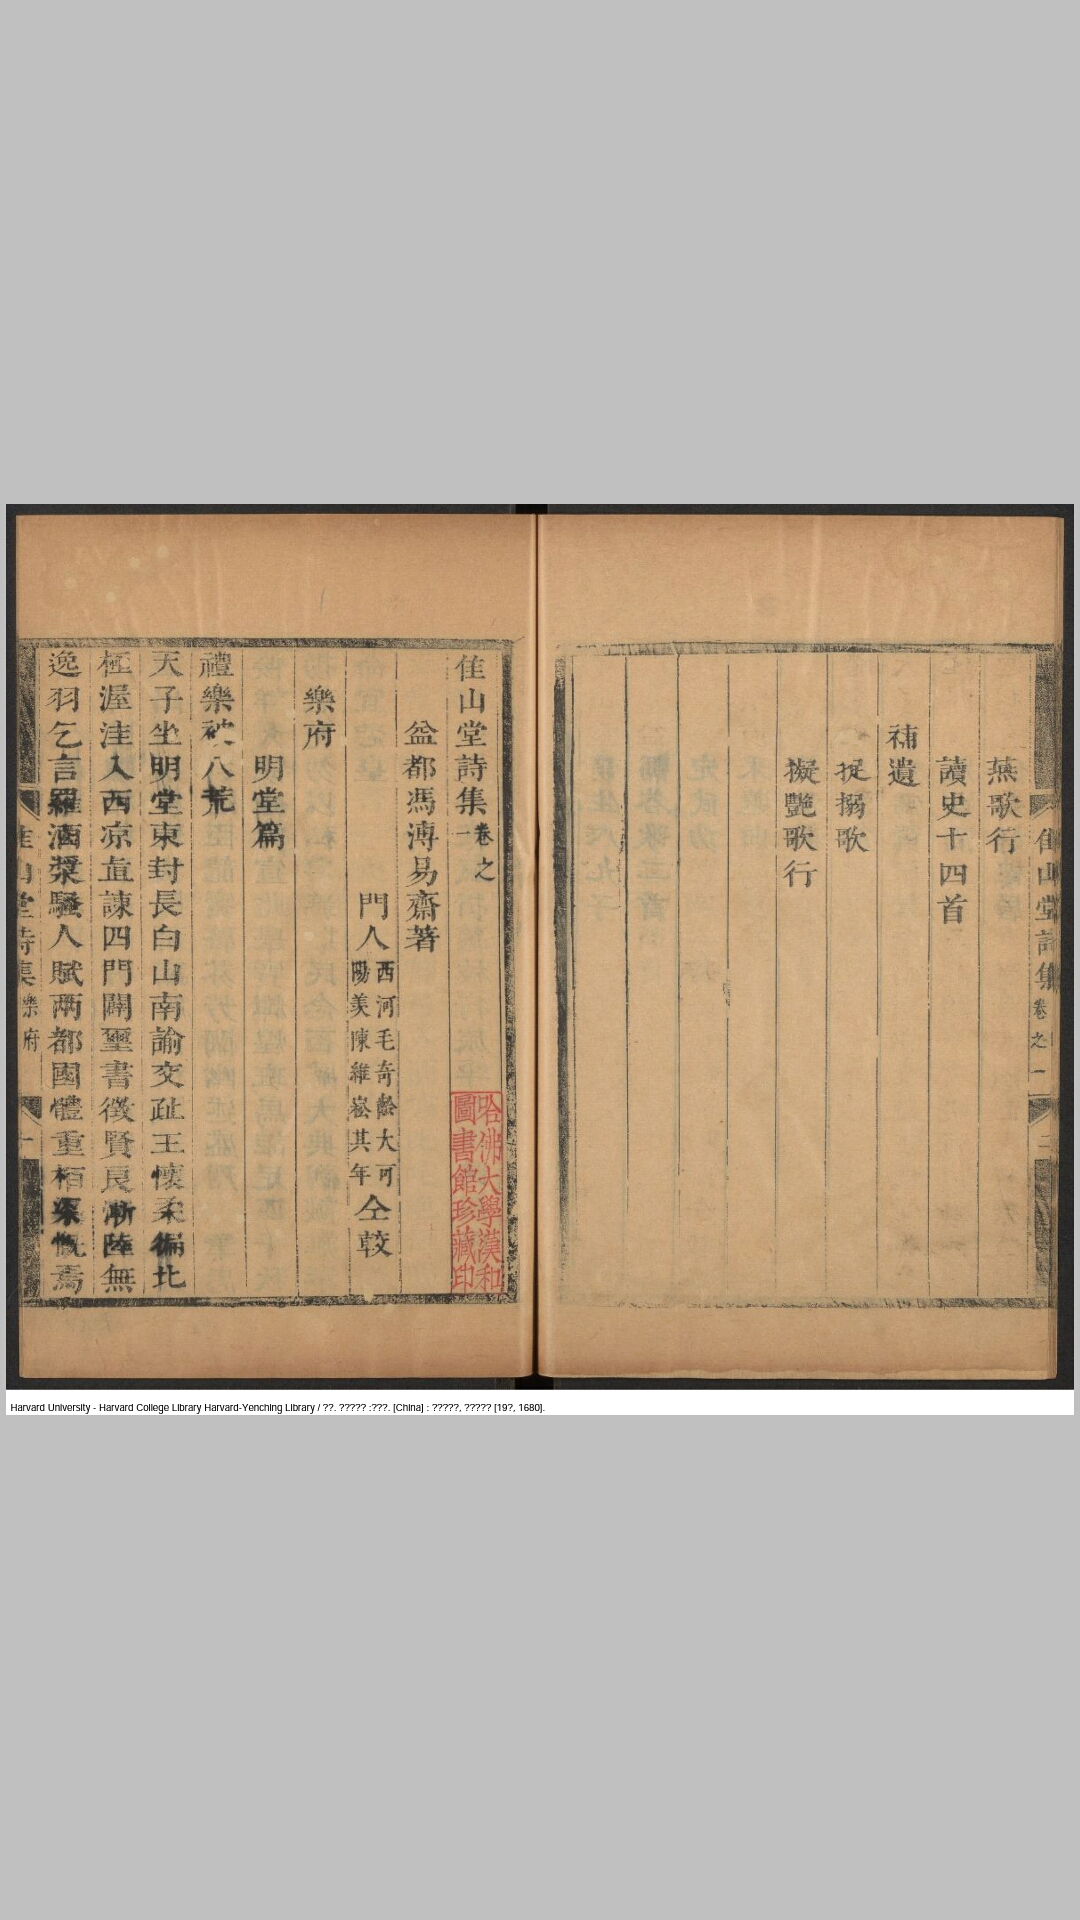 蕪歌行
讀史十四首
補遺
捉搦歌
擬艷歌行
佳山堂詩集 卷之一
二
佳山堂詩集卷之一
益都馮溥易齋著
門人 西河毛奇齡大可 陽羨陳維崧其年 仝較
樂府
明堂篇
禮樂被八荒
天子坐明堂東封長白山南諭交趾王懷柔徧北
極渥洼入西凉直諫四門闢璽書徵賢良漸陸無
逸羽乞言羅酒漿騷人賦兩都國體重栢梁慨焉
佳山堂詩集 樂府
一
哈佛大學漢和
圖書館珍藏印
Harvard University - Harvard College Library Harvard-Yenching Library / ??. ????? :???. [China] : ?????, ????? [19?, 1680].